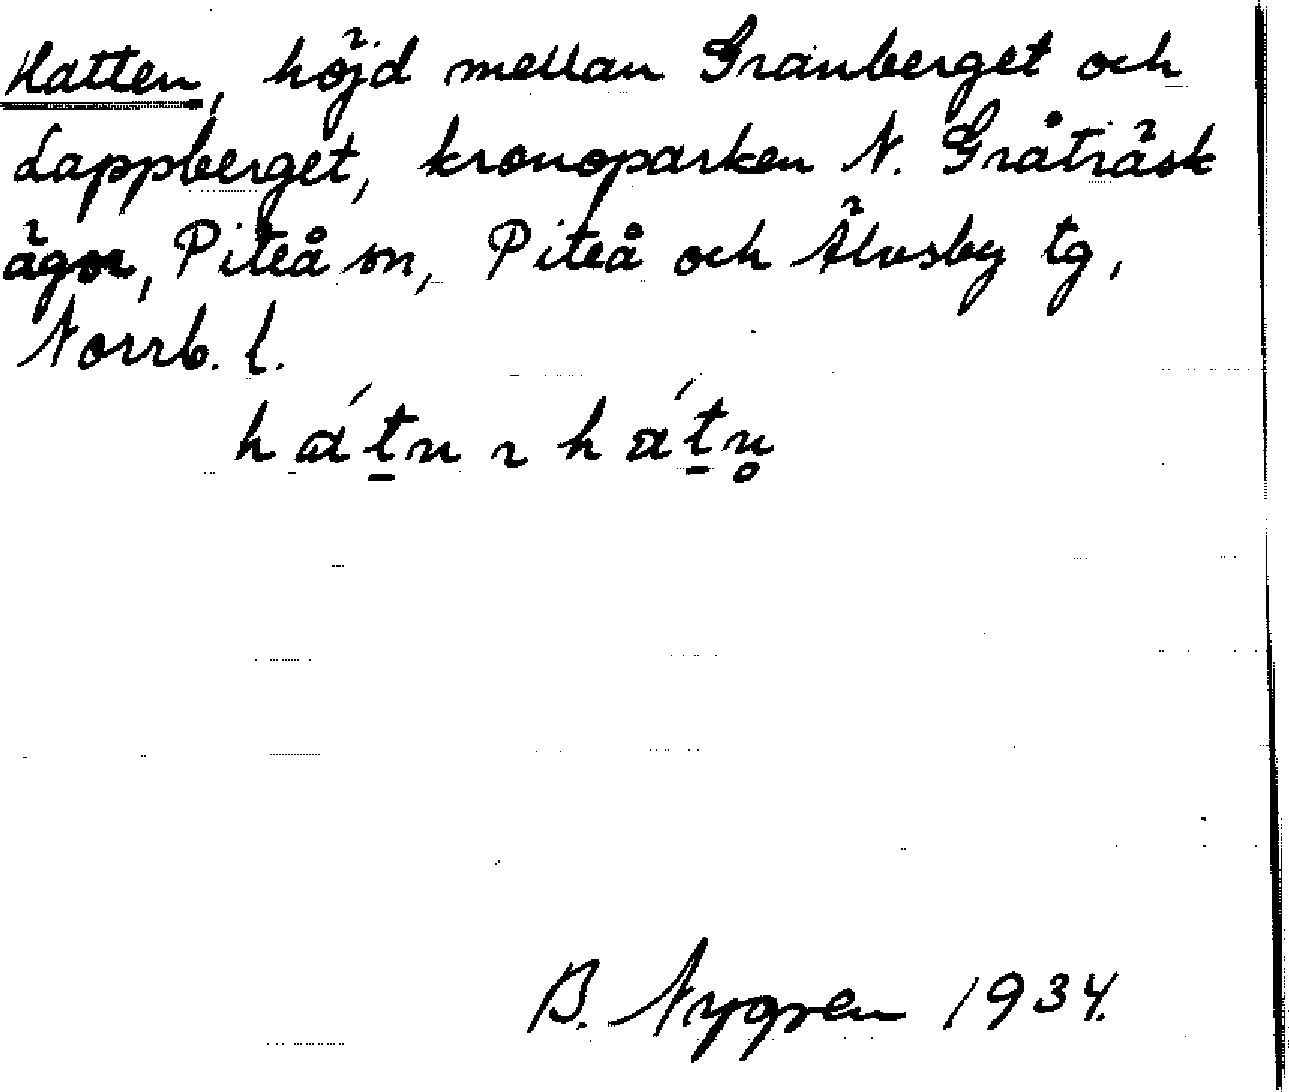 Hatten, höjd mellan Granberget och
Lappberget, kronoparken N. Gråträsk
ägor, Piteå sn, Piteå och Älvsby tg,
Norrb. l.
B. Nygren 1934.